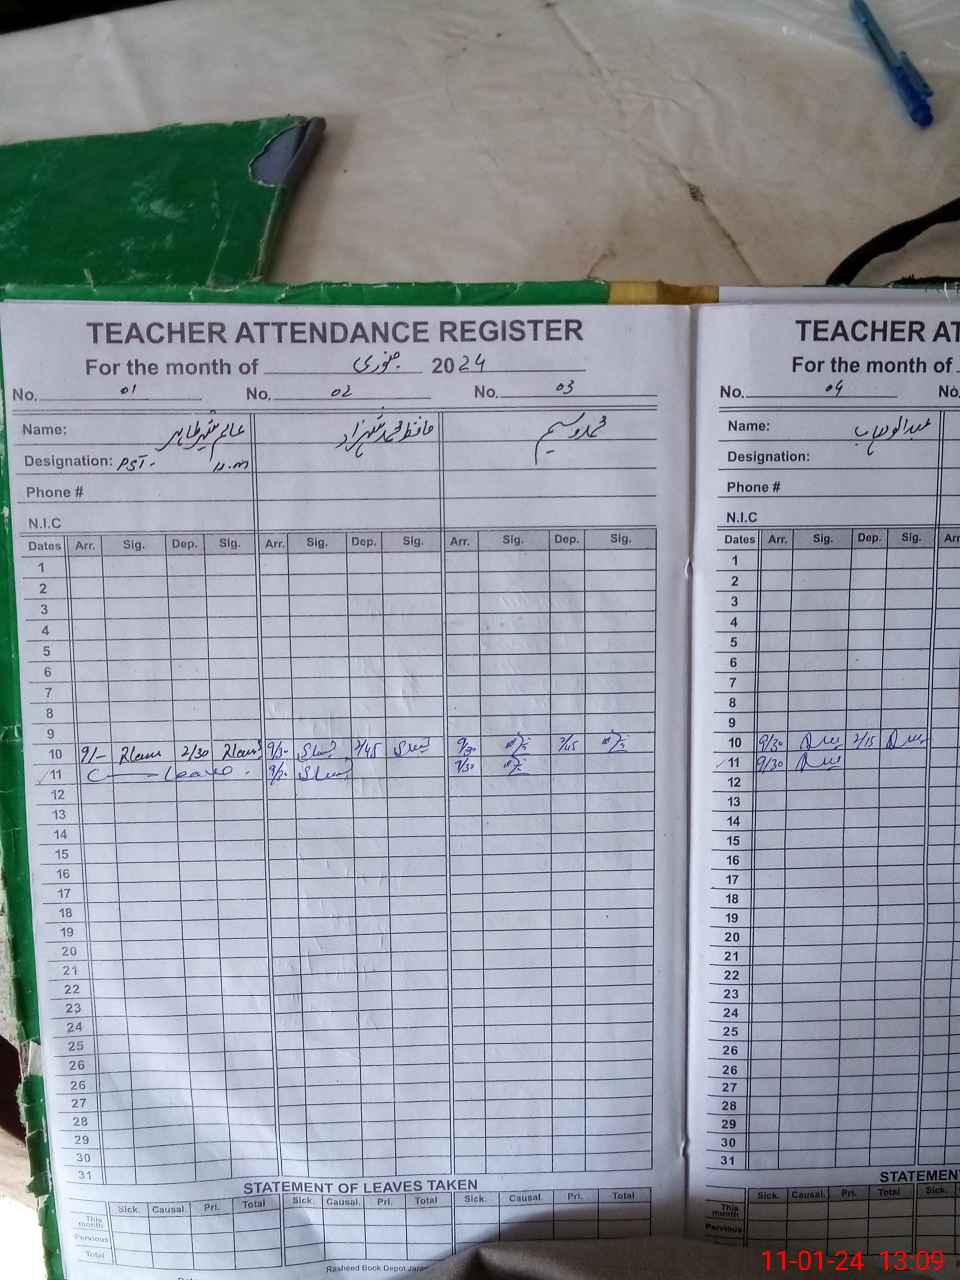 TEACHER ATTENDANCE REGISTER
For the month of جنوری 2024
No. 01 No. 02 No. 03
Name: عالم شیر طاہر حافظ محمد شہزاد محمد وسیم
Designation: PST.
Phone #
N.I.C
Dates Arr. Sig. Dep. Sig. Arr. Sig. Dep. Sig. Arr. Sig. Dep. Sig.
1
2
3
4
5
6
7
8
9
10 9/- 2/30 2/45 9/30 2/45
11 C Leave. 9/30
12
13
14
15
16
17
18
19
20
21
22
23
24
25
26
26
27
28
29
30
31
STATEMENT OF LEAVES TAKEN
Sick. Causal. Pri. Total Sick. Causal. Pri. Total Sick. Causal. Pri. Total
This month
Pervious
Total
Rasheed Book Depot
TEACHER AT
For the month of
No. 04 No.
Name: عبدالوہاب
Designation:
Phone #
N.I.C
Dates Arr. Sig. Dep. Sig. Arr
1
2
3
4
5
6
7
8
9
10 9/30 2/15
11 9/30
12
13
14
15
16
17
18
19
20
21
22
23
24
25
26
26
27
28
29
30
31
STATEMENT
Sick. Causal. Pri. Total Sick.
This month
Pervious
Total
11-01-24 13:09